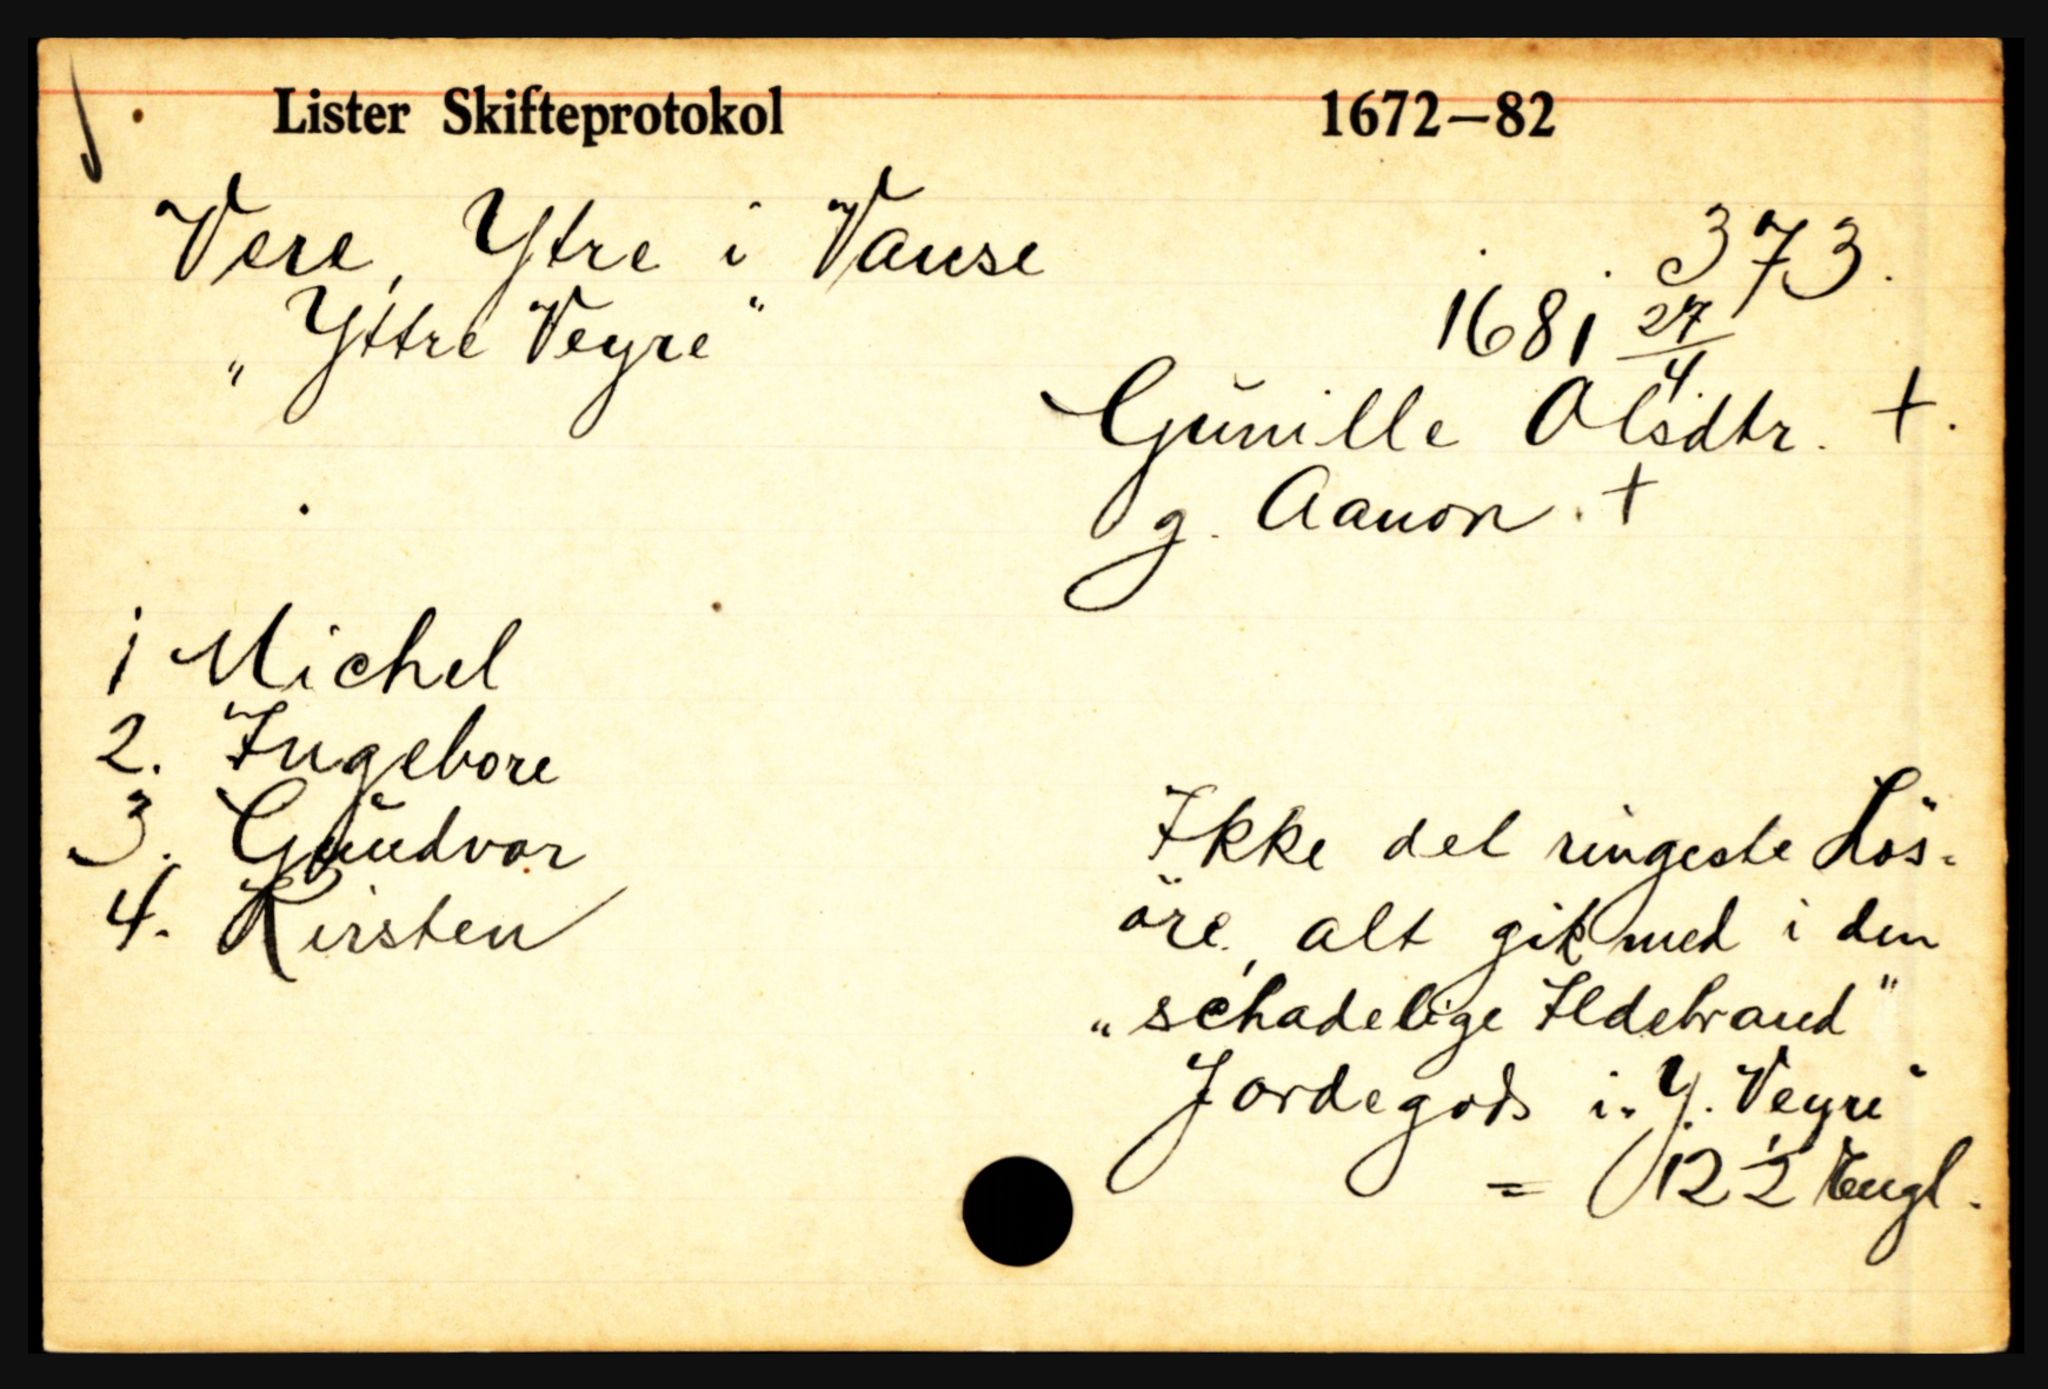 Lister Skifteprotokol 1672—82
Vere, Ytre i Vanse
373.
„Yttre Veyre"
1681 27/4
Gŭnille Olsdtr. +.
g. Aanon. +
1 Michel
2. Ingebore
3. Gŭndvor
4. Kirsten
Ikke det ringeste Lös-
öre, alt gik med i den
„schadelige Ildebrand"
Jordegods i „Y. Veyre"
= 12 1/2 Engl.